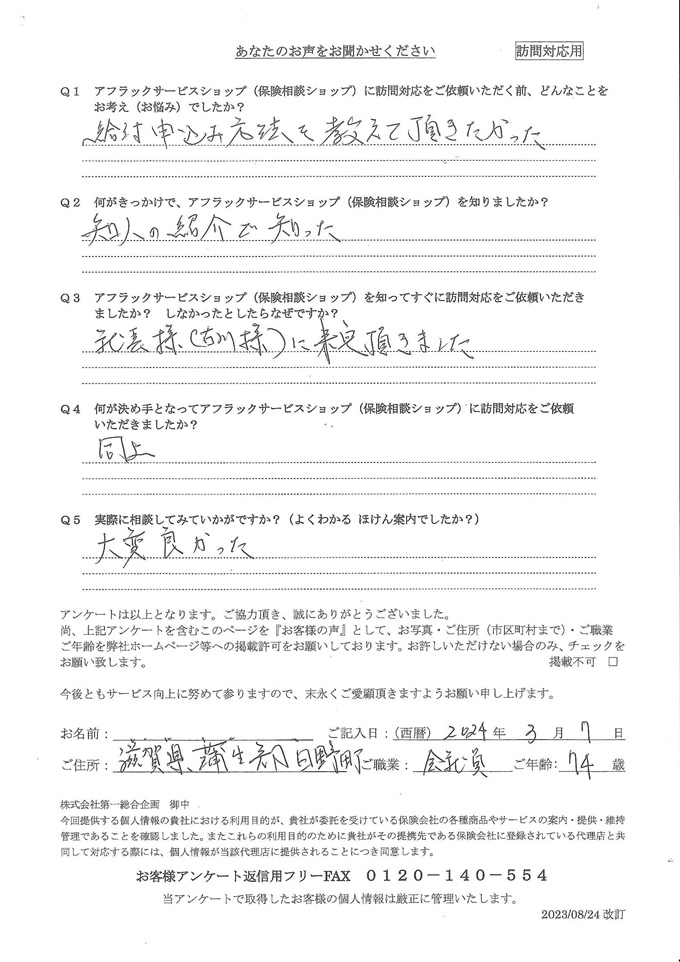 あなたのお声をお聞かせください
訪問対応用
Q1 アフラックサービスショップ（保険相談ショップ）に訪問対応をご依頼いただく前、どんなことを
お考え（お悩み）でしたか？
給付申込み方法を教えて頂きたかった
Q2 何がきっかけで、アフラックサービスショップ（保険相談ショップ）を知りましたか？
知人の紹介で知った
Q3 アフラックサービスショップ（保険相談ショップ）を知ってすぐに訪問対応をご依頼いただき
ましたか？ しなかったとしたらなぜですか？
社長様、（古川様）に来宅頂きました
Q4 何が決め手となってアフラックサービスショップ（保険相談ショップ）に訪問対応をご依頼
いただきましたか？
同上
Q5 実際に相談してみていかがですか？（よくわかる ほけん案内でしたか？）
大変良かった
アンケートは以上となります。ご協力頂き、誠にありがとうございました。
尚、上記アンケートを含むこのページを『お客様の声』として、お写真・ご住所（市区町村まで）・ご職業
ご年齢を弊社ホームページ等への掲載許可をお願いしております。お許しいただけない場合のみ、チェックを
お願い致します。 掲載不可 □
今後ともサービス向上に努めて参りますので、末永くご愛顧頂きますようお願い申し上げます。
お名前： ご記入日：（西暦）2024年 3月 7日
ご住所：滋賀県、蒲生郡日野町 ご職業：会社員 ご年齢：74歳
株式会社第一総合企画 御中
今回提供する個人情報の貴社における利用目的が、貴社が委託を受けている保険会社の各種商品やサービスの案内・提供・維持
管理であることを確認しました。またこれらの利用目的のために貴社がその提携先である保険会社に登録されている代理店と共
同して対応する際には、個人情報が当該代理店に提供されることにつき同意します。
お客様アンケート返信用フリーFAX 0120－140－554
当アンケートで取得したお客様の個人情報は厳正に管理いたします。
2023/08/24 改訂